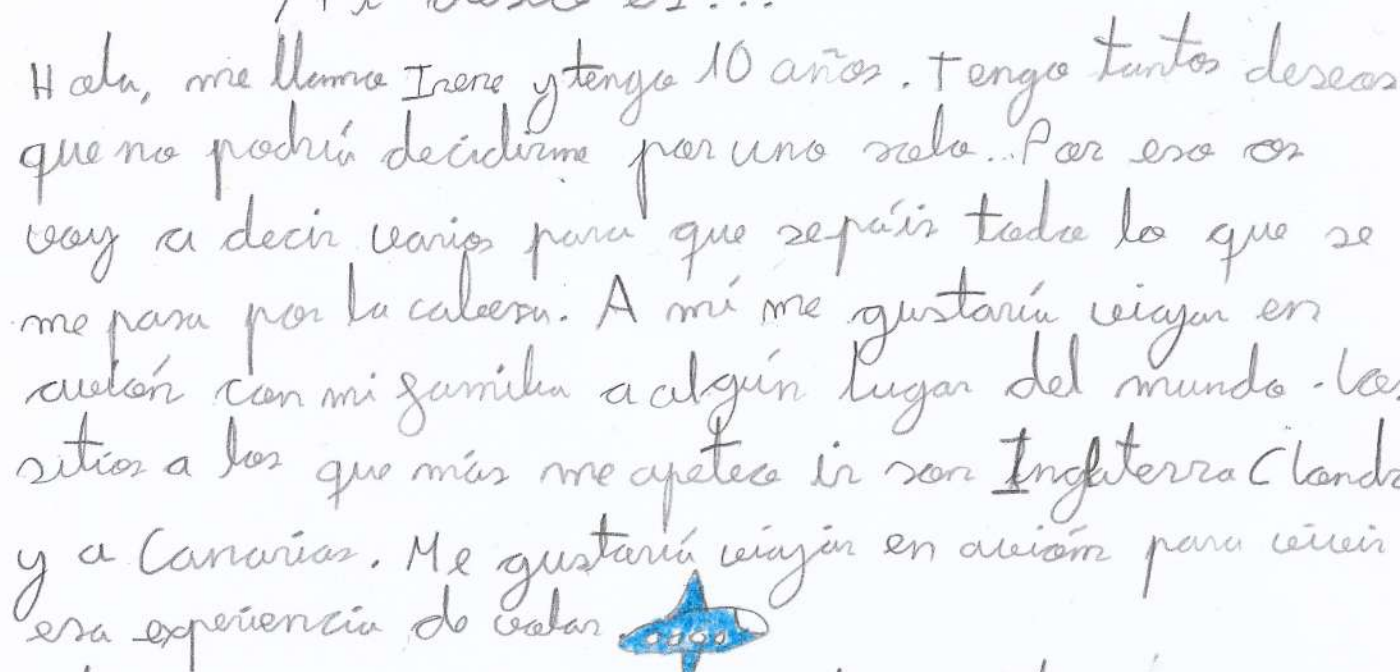 Mi deseo es...
Hola, me llamo Irene y tengo 10 años. Tengo tantos deseos
que no podría decidirme por uno solo... Por eso os
voy a decir varios para que sepáis todo lo que se
me pasa por la cabeza. A mí me gustaría viajar en
avión con mi familia a algún lugar del mundo. Los
sitios a los que más me apetece ir son Inglaterra (Lond
y a Canarias. Me gustaría viajar en avión para vivir
esa experiencia de volar